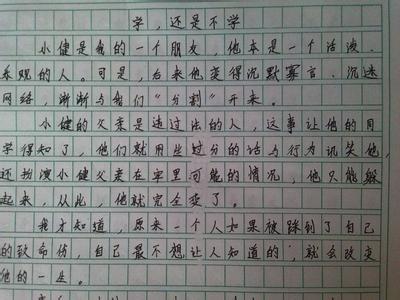 学,还是不学
小健是我的一个朋友,他本是一个活泼、
乐观的人。可是,后来他变得沉默寡言、沉迷
网络,渐渐与我们“分割”开来。
小健的父亲是违过法的人,这事让他的同
学得知了,他们就用些过分的话与行为讥笑他,
还扮演小健父亲在牢里可能的情况,他只能躲
起来,从此,他就完全变了。
我才知道,原来一个人如果被踩到了自己
的致命伤,自己最不想让人知道的,就会改变
他的一生。